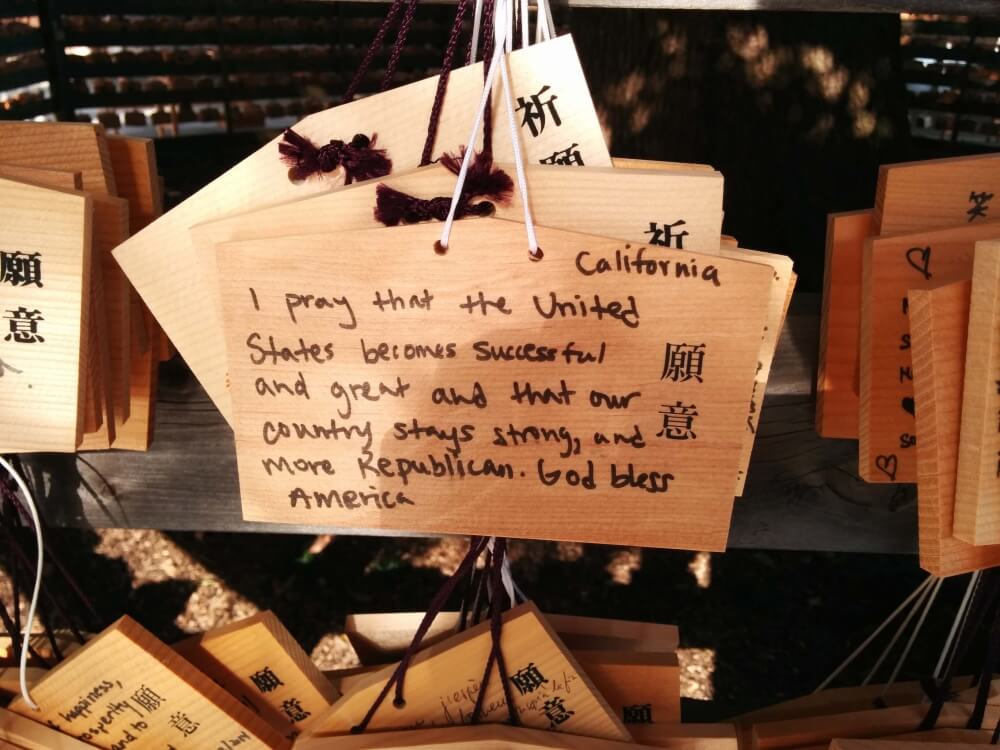 祈
願
祈
California
I pray that the United
States becomes successful
and great and that our
country stays strong, and
more Republican. God bless
America
願
意
願
意
笑
願
意
happiness,
願
意
願
意
願